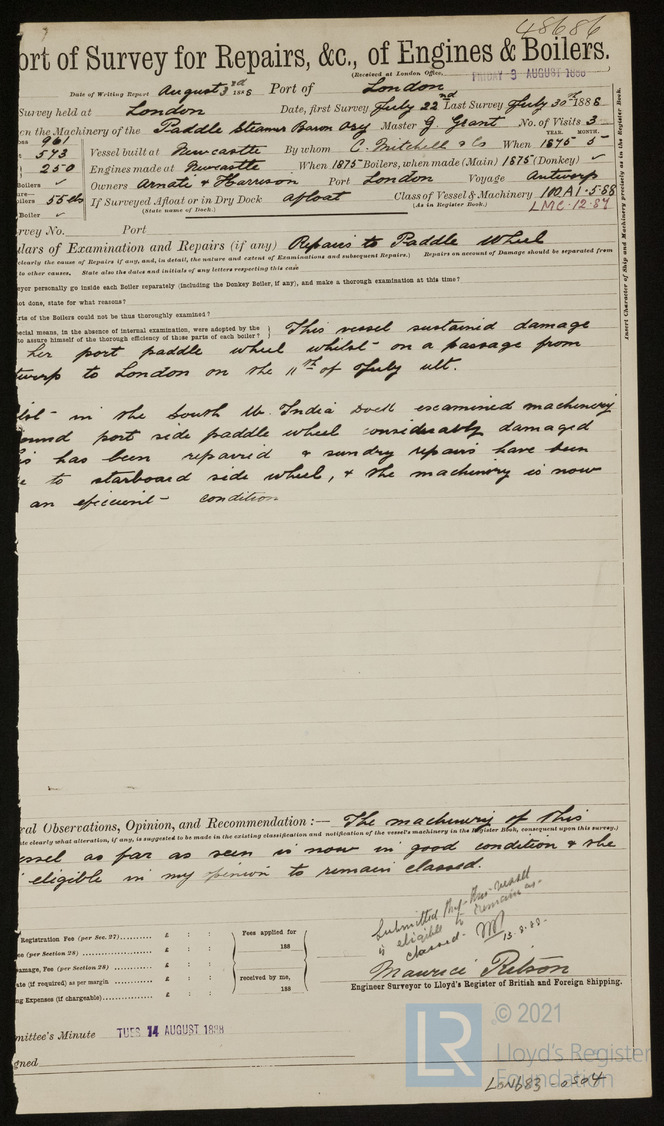 48686
ort of Survey for Repairs, &c., of Engines & Boilers.
(Received at London Office, FRIDAY 3 AUGUST 1888
Date of Writing Report August 3rd 1888 Port of London
Survey held at London Date, first Survey July 22nd Last Survey July 30th 1888
on the Machinery of the Paddle Steamer Baron Osy Master G. Grant No. of Visits 3
YEAR. MONTH.
961
573 Vessel built at Newcastle By whom C. Mitchell & Co When 1875 5
250 Engines made at Newcastle When 1875 Boilers, when made (Main) 1875 (Donkey) ✓
Boilers ✓ Owners & Harrison Port London Voyage Antwerp
oilers 55 lbs If Surveyed Afloat or in Dry Dock afloat Class of Vessel & Machinery 100A1·5·88
(State name of Dock.) (As in Register Book.) LMC·12·87
Boiler ✓
rvey No. Port
ulars of Examination and Repairs (if any) Repairs to Paddle Wheel
clearly the cause of Repairs if any, and, in detail, the nature and extent of Examinations and subsequent Repairs.) Repairs on account of Damage should be separated from
to other causes. State also the dates and initials of any letters respecting this case
eyor personally go inside each Boiler separately (including the Donkey Boiler, if any), and make a thorough examination at this time?
not done, state for what reasons?
rts of the Boilers could not be thus thoroughly examined?
pecial means, in the absence of internal examination, were adopted by the
to assure himself of the thorough efficiency of those parts of each boiler? } This vessel sustained damage
her port paddle wheel whilst on a passage from
twerp to London on the 11th of July ult.
lst in the South W. India Dock examined machinery
ound port side paddle wheel considerably damaged
is has been repaired & sundry repairs have been
e to starboard side wheel, & the machinery is now
an efficient condition
Insert Character of Ship and Machinery precisely as in the Register Book.
ral Observations, Opinion, and Recommendation :— The machinery of this
te clearly what alteration, if any, is suggested to be made in the existing classification and notification of the vessel's machinery in the Register Book, consequent upon this survey.)
essel as far as seen is now in good condition & she
eligible in my opinion to remain classed.
Submitted that this vessel
is eligible to remain as
classed. 13.8.88.
Registration Fee (per Sec. 27) £ : : Fees applied for
ee (per Section 28) £ : : 188
amage, Fee (per Section 28) £ : :
ate (if required) as per margin £ : : received by me,
ng Expenses (if chargeable) £ : : 188
Maurice Ritson
Engineer Surveyor to Lloyd's Register of British and Foreign Shipping.
mittee's Minute TUES 14 AUGUST 1888
gned
LR © 2021
Lloyd's Register
Foundation
LON683-0504